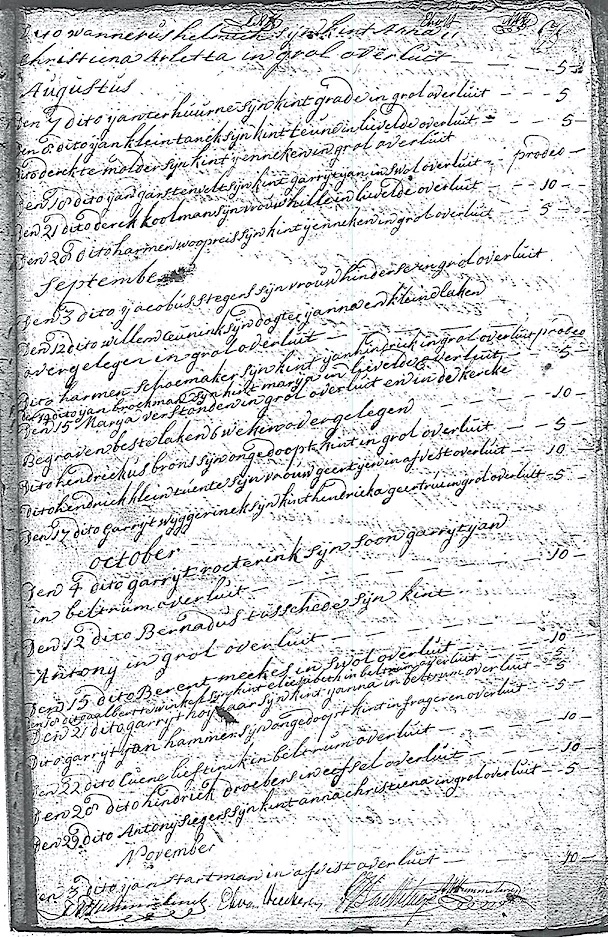 Dito wannerus helmich sijn kint Anna
christiena Arletta in grol overluit — 5 —
Augustus
Den 7 dito yan ter huurne sijn kint grade in grol overluit — 5
Den 8 dito yan klein tanck sijn kint teune in lievelde overluit — 5 —
Dito derck te molder sijn kint yenneken in grol overluit prodeo —
Den 10 dito yan garstenvelt sijn kint garryt yan in swol overluit
Den 21 dito derck koolman sijn vrouw hille in lievelde overluit — 10 —
Den 28 dito harmen woopreis sijn kint yenneken in grol overluit — 5 —
September
Den 3 dito yacobus Stegers sijn vrouw hinderse in grol overluit
Den 12 dito willem Ceunink sijn dogter yanna en klein laken
overgelegen in grol overluit
Dito harmen Schoemaker sijn kint yan hindrick in grol overluit prodeo
Den 14 dito yan brockman sijn kint marya in lievelde overluit — 5 —
Den 15 Marya verstanden in grol overluit en in de kercke
Begraven beste laken 6 weken overgelegen — 10 —
Dito hindrickus brons sijn ongedoopt kint in grol overluit — 5 —
Dito hendrick klein tuente sijn vrouw geertyen in afvest overluit — 10 —
Den 17 dito garryt wyggerinck sijn kint hendricka geertrui in grol overluit — 5 —
october
Den 4 dito garryt roeterink sijn soon garryt yan
in beltrum overluit — 10 —
Den 12 dito Bernadus tasschede sijn kint
Antony in grol overluit
Den 15 dito Berent meekes in swol overluit — 10 —
dito albert winkel sijn kint eliesebeth in beltrum overluit — 5 —
Den 21 dito garryt hoffhaar sijn kint yanna in beltrum overluit — 5
Dito garryt yan hammer sijn ongedoopt kint in overluit — 5 —
Den 22 dito Luene lieftinck in beltrum overluit — 10 —
Den 28 dito hindrick droebers in eefsel overluit — 10 —
Den 29 dito Antony Segers sijn kint anna christiena in grol overluit — 5
November
Den 3 dito yan Startman in afvest overluit — 10 —